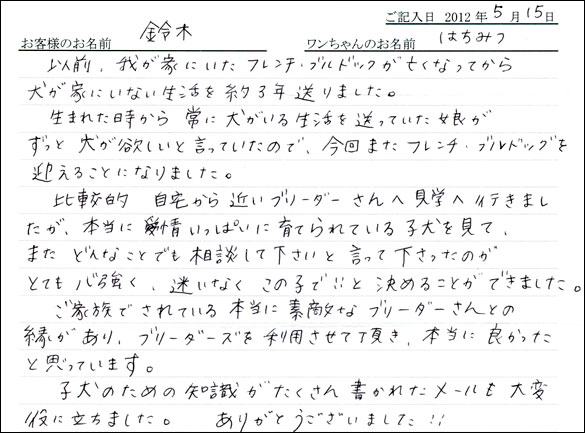 ご記入日 2012年5月15日
お客様のお名前 鈴木 ワンちゃんのお名前 はちみつ
以前、我が家にいたフレンチ・ブルドックが亡くなってから
犬が家にいない生活を約3年送りました。
生まれた時から常に犬がいる生活を送っていた娘が
ずっと犬が欲しいと言っていたので、今回またフレンチ・ブルドッグを
迎えることになりました。
比較的 自宅から近いブリーダーさんへ見学へ行きまし
たが、本当に愛情いっぱいに育てられている子犬を見て、
またどんなことでも相談して下さいと言って下さったのが
とても心強く、迷いなくこの子で!!と決めることができました。
ご家族でされている本当に素敵なブリーダーさんとの
縁があり、ブリーダーズを利用させて頂き、本当に良かった
と思っています。
子犬のための知識がたくさん書かれたメールも大変
役に立ちました。 ありがとうございました!!